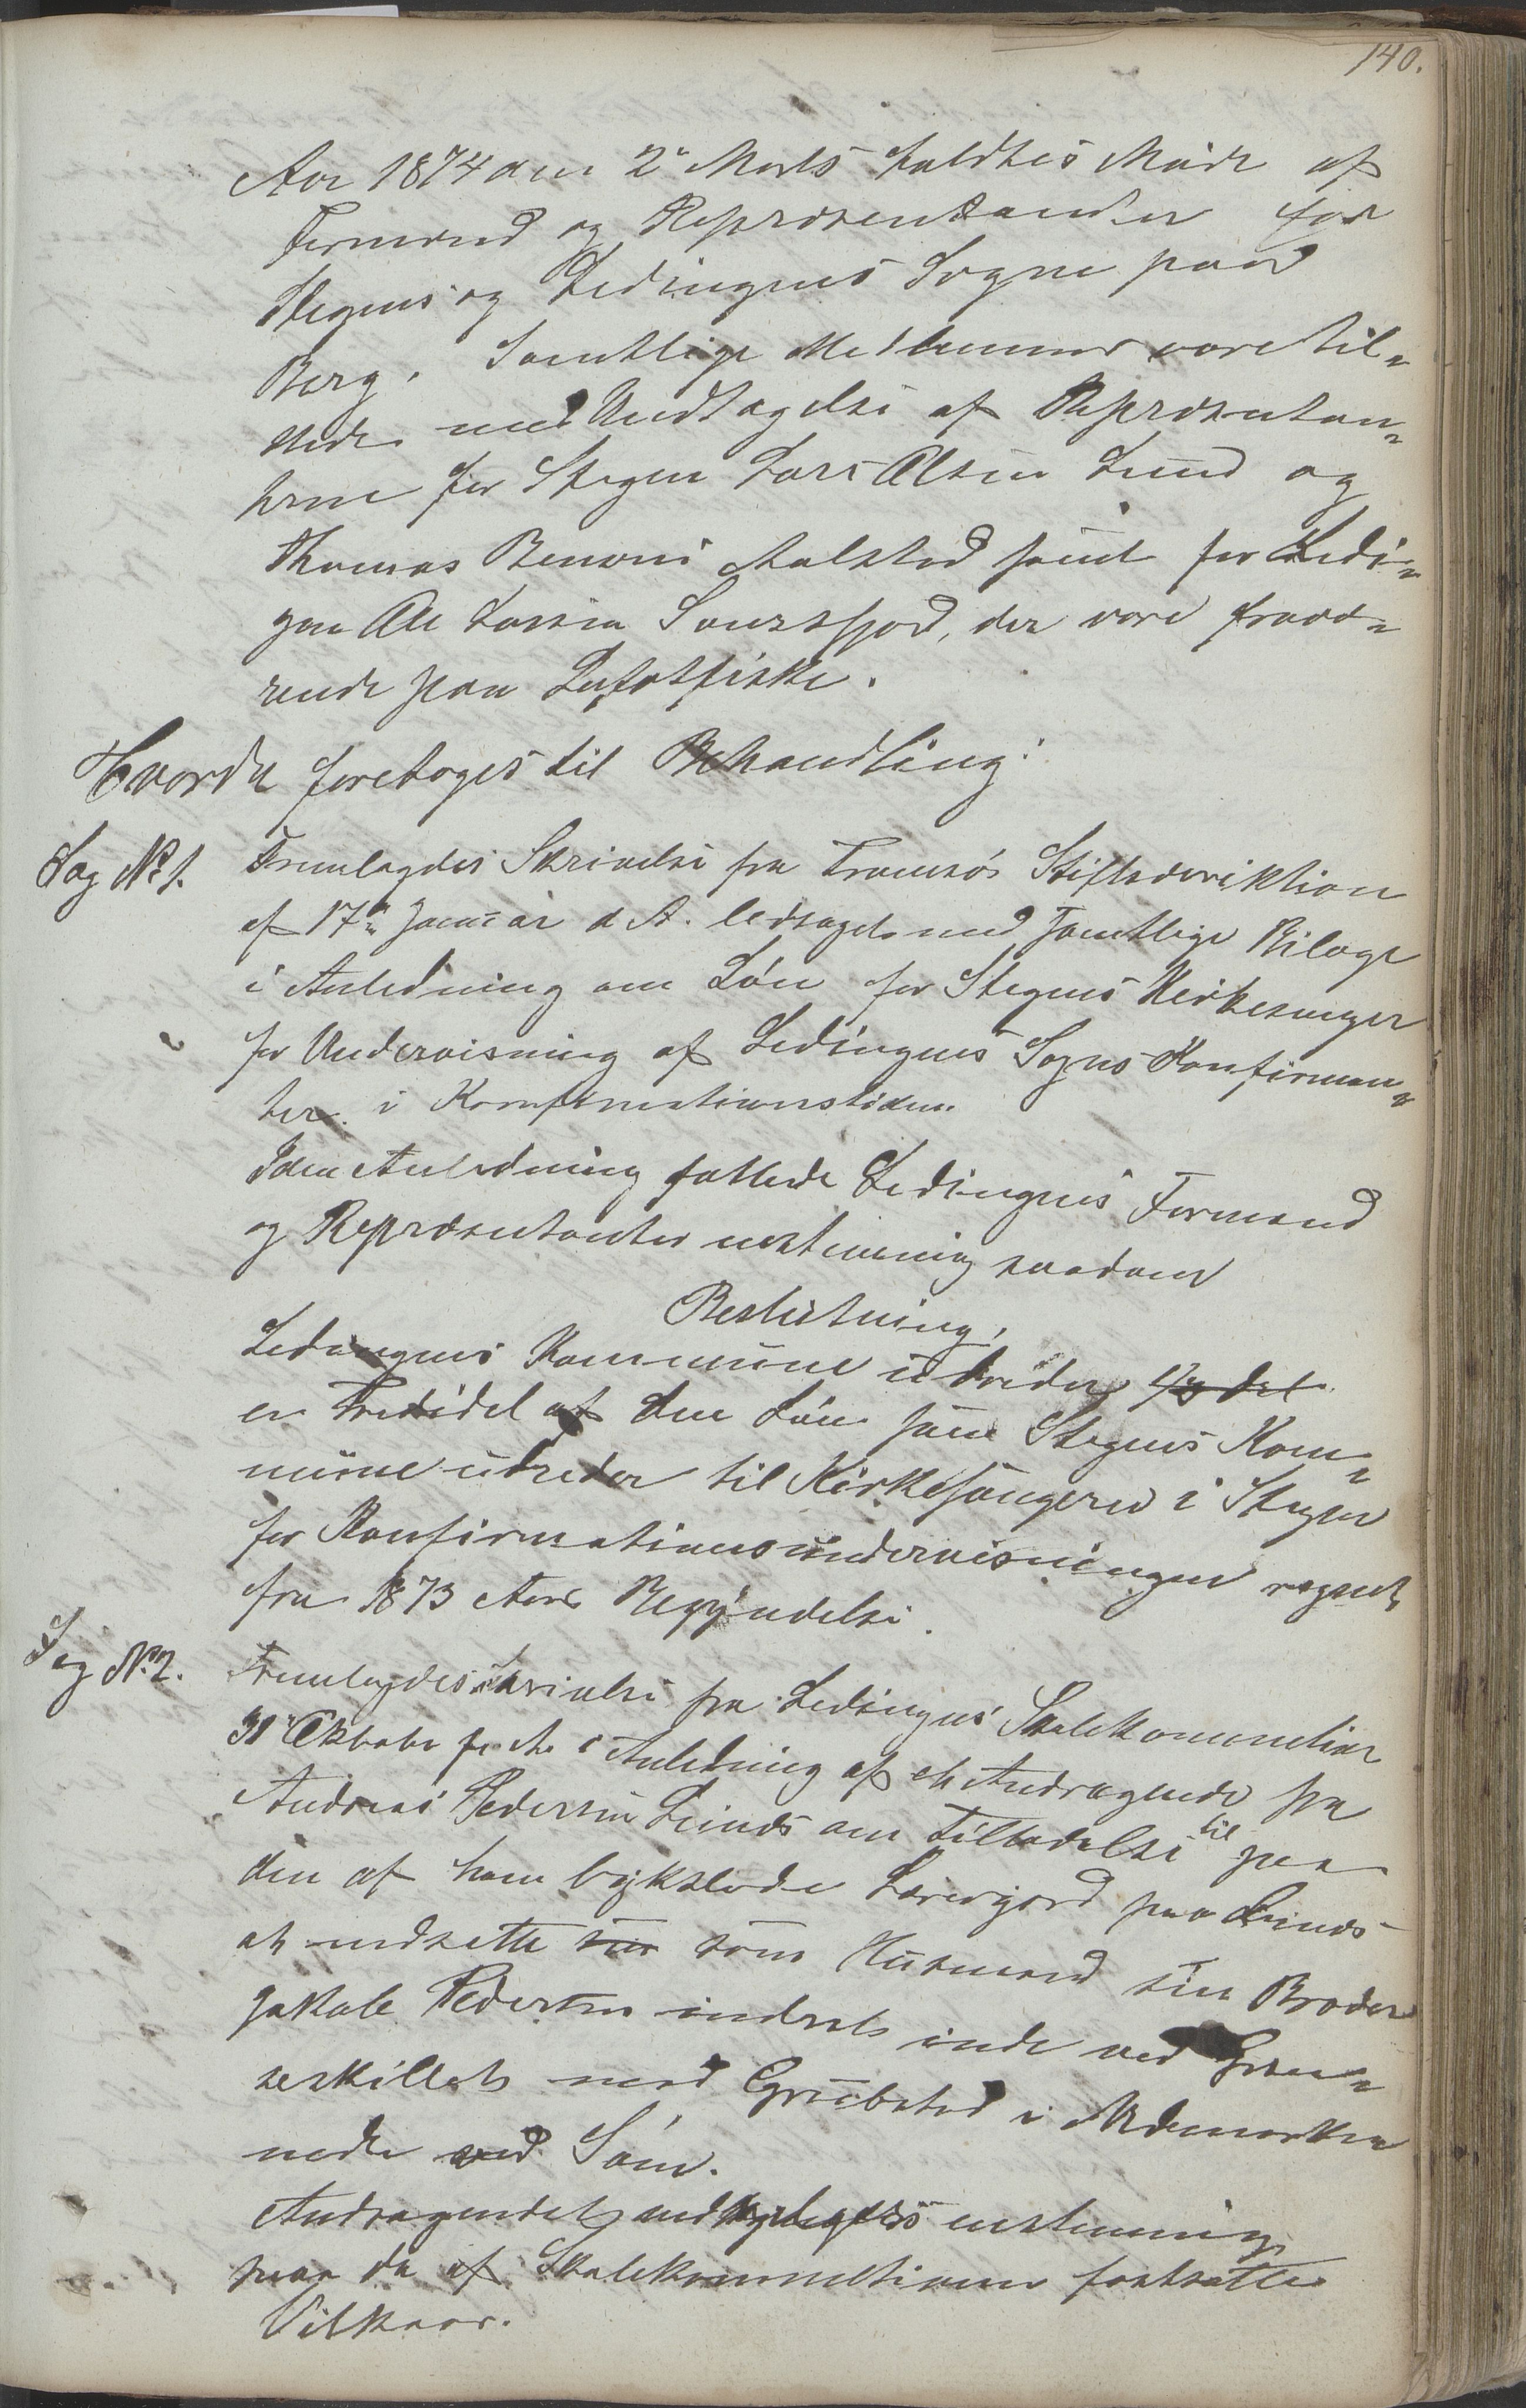 140.
Aar 1874 den 2n Marts holdtes Møde af
Formænd og Repræsentanter for
Stegens og Ledingens Sogne paa
Borg. Samtlige Medlemmer vare til-
stede med Undtagelse af Repræsentan-
terne for Stegen Lars Olsen Lund og
Thomas Benoni Aalstad samt for Ledin-
gen Ole Larsen Sourssfjord, der vare fravæ-
rende paa Lofotfiske.
Hvorda foretoges til Behandling:
Sag No 1. Fremlagdes Skrivelse fra Tromsø Stiftsdirektion
af 17de Januar d. A. ledsaget med samtlige Bilage
i Anledning om Løn for Stegens Kirkesanger
for Undervisning af Ledingens Sogns Konfirman-
ter i Konfirmationstiden.
I den Anledning fattede Ledingens Formænd
og Repræsentanter eenstemmig saadan
Beslutning,
Ledingens Kommune udreder 1/3 del
en Trediedel af den Løn som Stegens Kom-
mune udreder til Kirkesangeren i Stegen
for Konfirmationsundervisningen regnet
fra 1873 Aars Begyndelse.
Sag No 2. Fremlagdes Skrivelse fra Ledingens Skolekommission
31 Oktober f. A. i Anledning af et Andragende fra
Andreas Pedersen Leines om Tilladelse til paa
den af ham bykslede Lærerjord paa Leines
at indsætte som Husmand sin Broder
Jakob Pedersen inderst inde ved Græn-
seskillet med Grubstad i Udemarken
nede ved Søen.
Andragendet eenstemmig
paa de af Skolekommissionen fastsatte
Vilkaar.